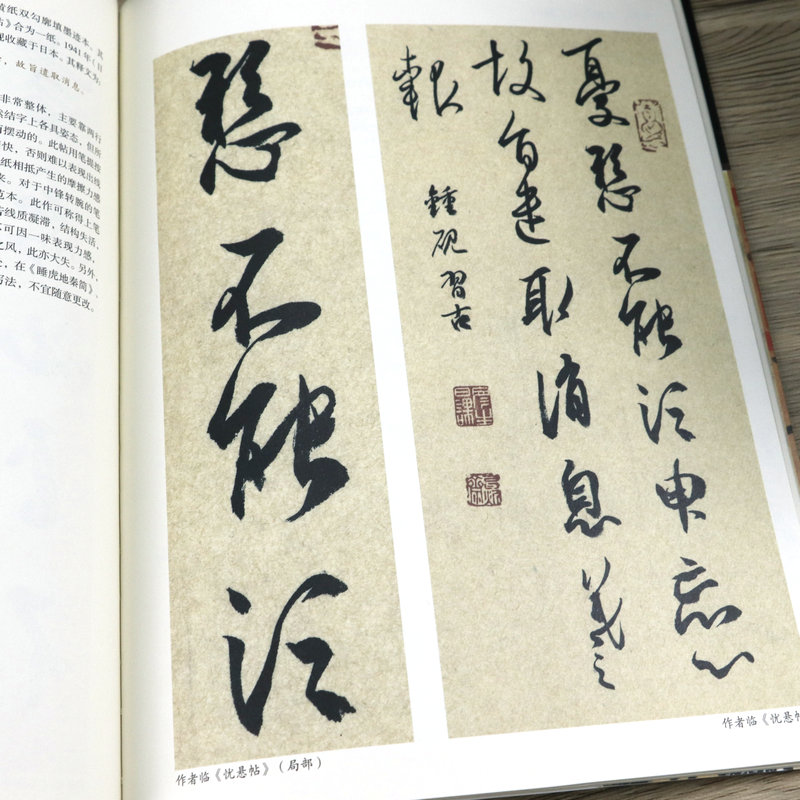 黄纸双勾廓填墨迹本，其
帖》合为一纸。1941年（日
现收藏于日本。其释文为：
，故旨遣取消息。
非常整体，主要靠两行
结字上各具姿态，但所
摆动的。此帖用笔提按
快，否则难以表现出线
纸相抵产生的摩擦力感
来。对于中锋转腕的笔
范本。此作可称得上笔
若线质凝滞，结构失活，
不可因一味表现力感，
之风，此亦大失。另外，
，在《睡虎地秦简》、
写法，不宜随意更改。
懸不能須
憂懸不能須臾忘心
故旨遣取消息羲之
報
鍾硯習古
作者临《忧悬帖》（局部）
作者临《忧悬帖